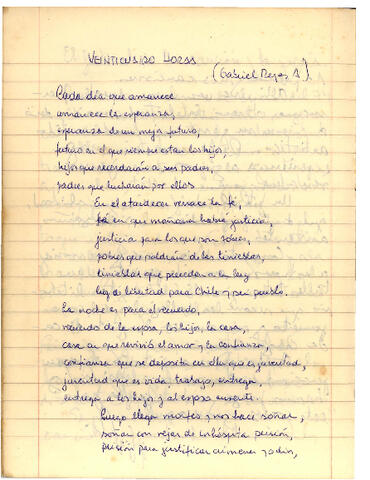 VEINTICUATRO HORAS
(Gabriel Reyes A.)
Cada día que amanece
amanece la esperanza,
esperanza de un mejor futuro,
futuro en el que siempre estan los hijos,
hijos que recordarán a sus padres,
padres que lucharan por ellos
En el atardecer renace la fé,
fé en que mañana habrá justicia,
justicia para los que son pobres,
pobres que saldrán de las tinieblas,
tinieblas que preceden a la luz
luz de libertad para Chile y su pueblo.
La noche es para el recuerdo,
recuerdo de la esposa, los hijos, la casa,
casa en que revivió el amor y la confianza,
confianza que se deposita en ella que es juventud,
juventud que es vida, trabajo, entrega,
entrega a los hijos y al esposo ausente.
Luego llega morfeo y nos hace soñar,
soñar con rejas de inhóspita prisión,
prisión para justificar crimenes y odio,